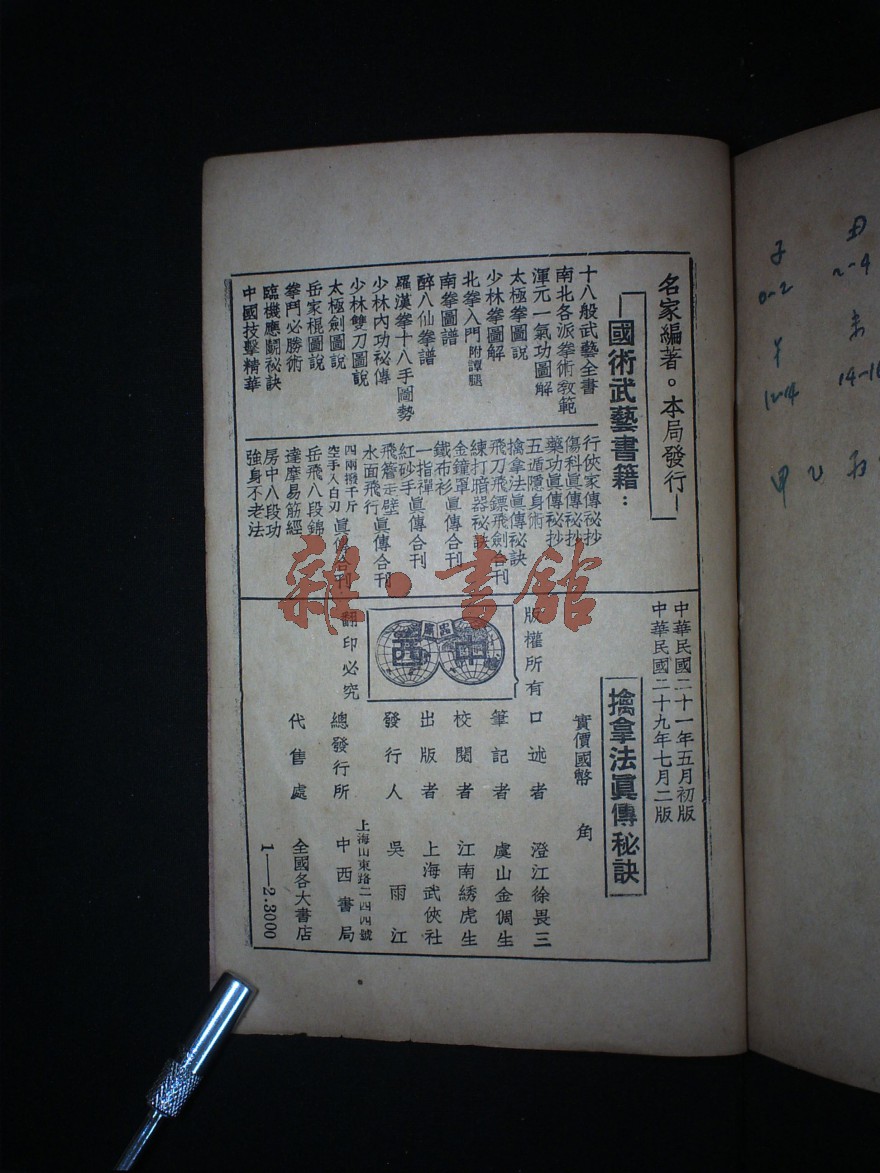 名家編著。本局發行
國術武藝書籍：
十八般武藝全書
南北各派拳術教範
渾元一氣功圖解
太極拳圖說
少林拳圖解
北拳入門 附譚腿
南拳圖譜
醉八仙拳譜
羅漢拳十八手圖勢
少林內功秘傳
少林雙刀圖說
太極劍圖說
岳家棍圖說
拳鬥必勝術
臨機應鬪秘訣
中國技擊精華
行俠家傳秘抄
傷科眞傳秘抄
藥功眞傳秘抄
五遁隱身術
擒拿法眞傳秘訣
飛刀飛鏢飛劍合刊
練打暗器秘訣
金鐘罩
鐵布衫 眞傳合刊
一指禪
紅砂手 眞傳合刊
飛簷走壁
水面飛行 眞傳合刊
四兩撥千斤
空手入白刃 眞傳合刊
岳飛八段錦
達摩易筋經
房中八段功
強身不老法
中華民國二十一年五月初版
中華民國二十九年七月二版
擒拿法眞傳秘訣
實價國幣 角
版權所有
翻印必究
中西
口述者 澄江徐畏三
筆記者 虞山金倜生
校閱者 江南綉虎生
出版者 上海武俠社
發行人 吳雨江
總發行所 上海山東路二四四號 中西書局
代售處 全國各大書店
1—2.3000
雜·書館
子 丑
0-2 2-4
未
12-14 14-16
甲 乙